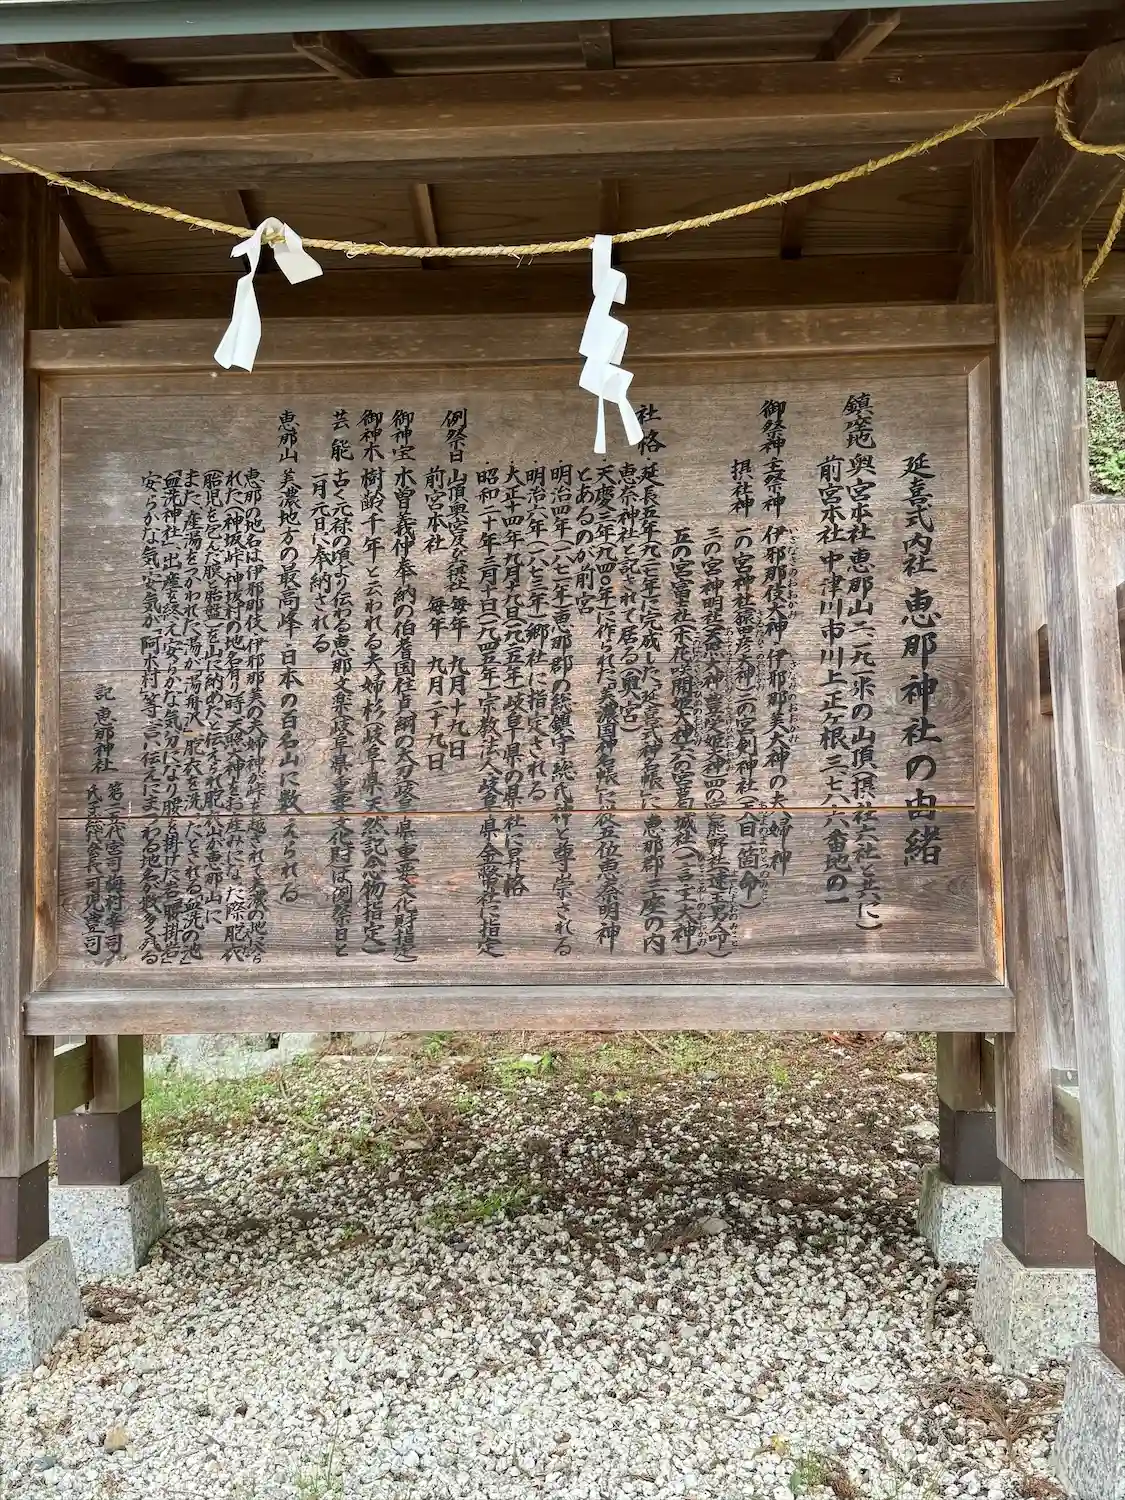 延喜式内社 恵那神社の由緒
鎮座地 奥宮本社 恵那山二一九〇米の山頂(摂社六社と共に)
前宮本社 中津川市川上正ヶ根三七六六番地の一
御祭神 主祭神 伊邪那伎大神 伊邪那美大神の夫婦神
摂社神 一の宮神社(猿田彦大神)二の宮剣神社(天目一箇命)
三の宮神明社(天照大神・豊受姫大神)四の宮熊野社(速玉男命)
五の宮富士社(木花咲開姫大神)六の宮葛城社(一言主大神)
社格 ・延長五年(九二七年)に完成した「延喜式神名帳」に「恵那郡三座の内
恵奈神社」と記されて居る(奥宮)
・天慶三年(九四〇年)に作られた「美濃国神名帳」に「従五位恵奈明神」
とあるのが前宮
・明治四年(一八七一年)恵那郡の総鎮守・総氏神と尊崇される
・明治六年(一八七三年)郷社に指定される
・大正十四年九月十九日(一九二五年)岐阜県の県社に昇格
・昭和二十年三月十日(一九四五年)宗教法人岐阜県金幣社に指定
例祭日 山頂奥宮及び六摂社 毎年 九月十九日
前宮本社 毎年 九月二十九日
御神宝 木曽義仲奉納の伯耆国住真綱の太刀(岐阜県重要文化財指定)
御神木 樹齢千年と云われる夫婦杉(岐阜県天然記念物指定)
芸能 古く元禄の頃より伝わる恵那文楽(岐阜県重要文化財)は例祭日と
一月元日に奉納される
恵那山 美濃地方の最高峰・日本の百名山に数えられる
恵那の地名は伊邪那伎、伊邪那美の夫婦神が峠を越されて美濃の地に入ら
れた(神坂峠・神坂村の地名有り)時、天照大神をお産みになった際、胞衣
(胎児を包んだ膜・胎盤)を山に納めたと伝えられ「胞衣山」が恵那山に
また、産湯をつかわれた湯が「湯舟沢」胞衣を洗ったとされる「血洗の池」
「血洗神社」、出産を終え、安らかな気分になり腰を掛けた岩「腰掛岩」
安らかな気「安気」が「阿木村」等、言い伝えにまつわる地名が数多く残る
記 恵那神社 第二五代宮司
氏子総代